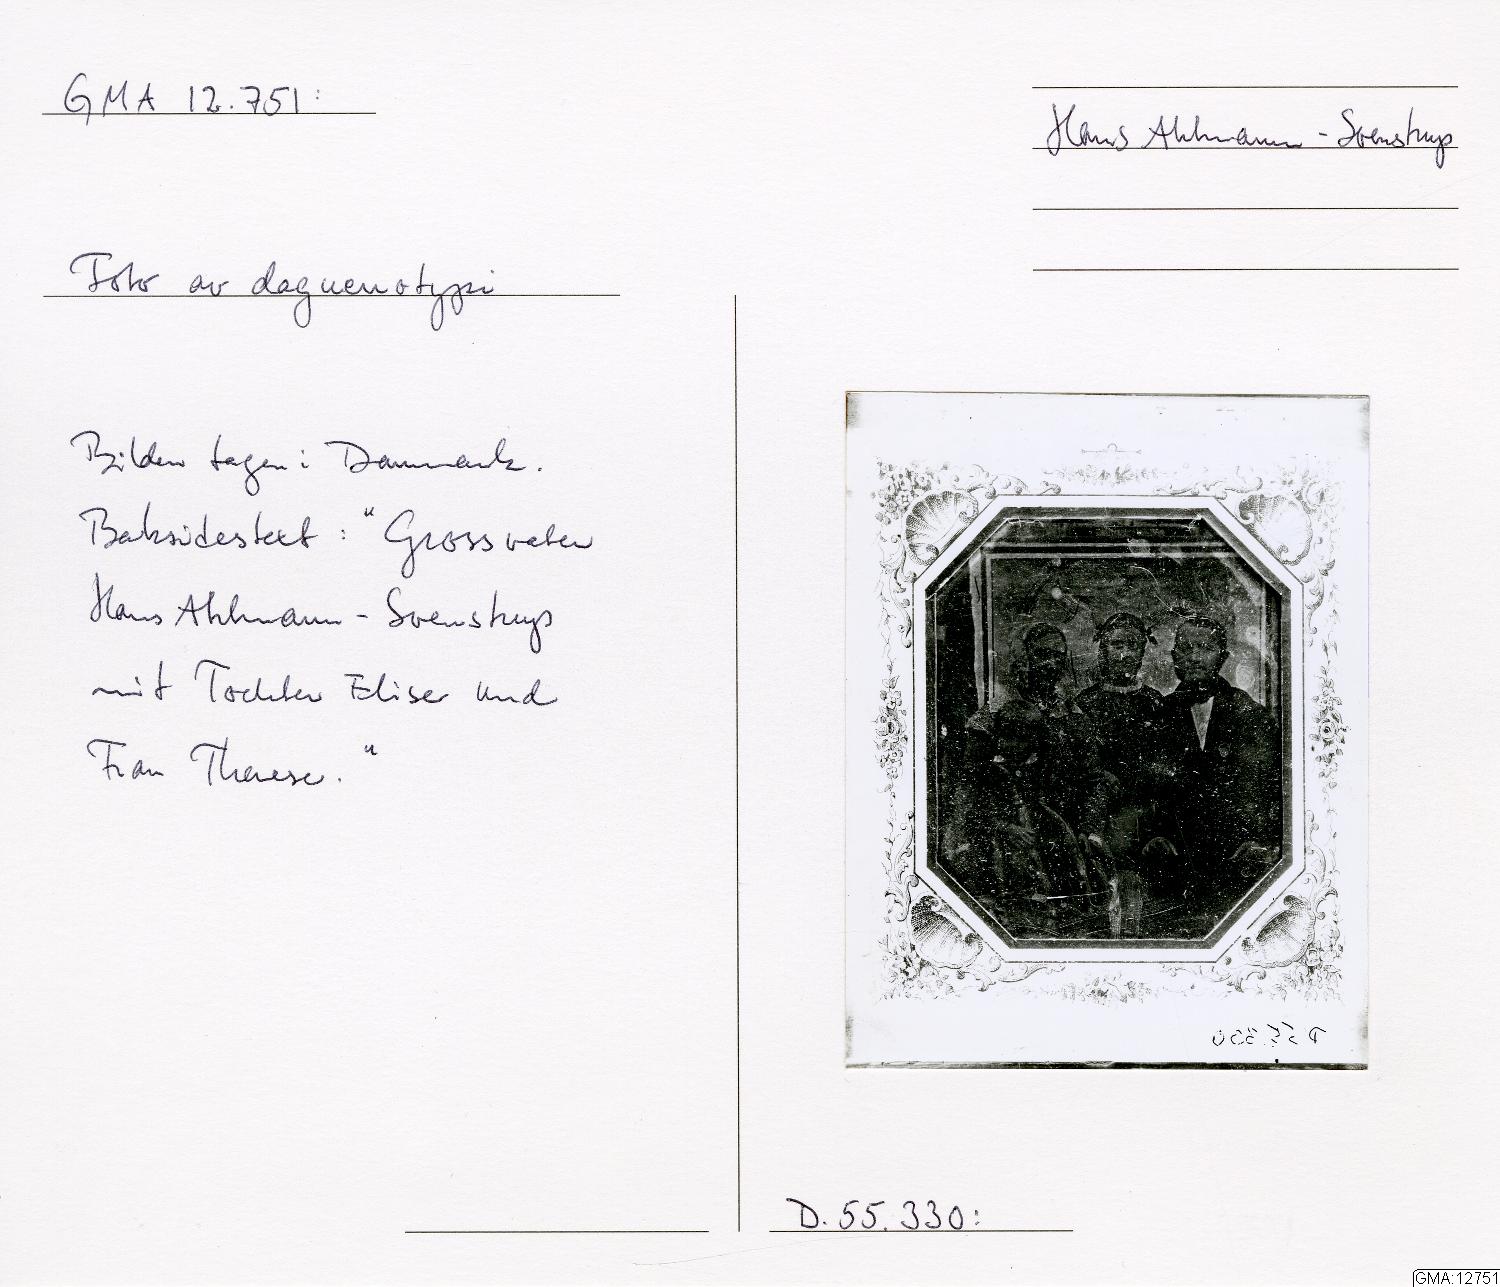 GMA 12.751:
Hans Ahlmann-Svenstrup
Foto av daguerrotypi
Bilden tagen i Danmark.
Baksidestext: "Grossvater
Hans Ahlmann-Svenstrup
mit Tochter Eliser und
Frau Therese."
D 55.330
D.55.330:
GMA:12751